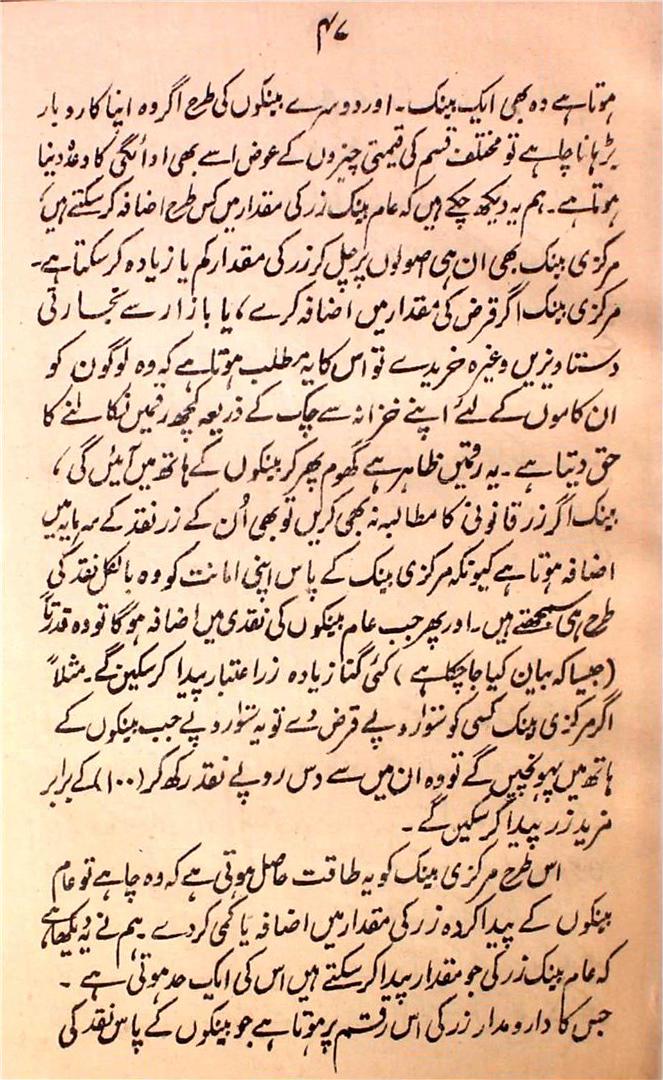 ۴۷
ہوتا ہے وہ بھی ایک بینک۔ اور دوسرے بینکوں کی طرح اگر وہ اپنا کاروبار
بڑہانا چاہے تو مختلف قسم کی قیمتی چیزوں کے عوض اسے بھی ادائگی کا وعدہ دینا
ہوتا ہے۔ ہم یہ دیکھ چکے ہیں کہ عام بینک زر کی مقدار میں کس طرح اضافہ کر سکتے ہیں
مرکزی بینک بھی ان ہی اصولوں پر چل کر زر کی مقدار کم یا زیادہ کر سکتا ہے۔
مرکزی بینک اگر قرض کی مقدار میں اضافہ کرے، یا بازار سے تجارتی
دستاویزیں وغیرہ خریدے تو اس کا یہ مطلب ہوتا ہے کہ وہ لوگون کو
ان کاموں کے لئے اپنے خزانہ سے چک کے ذریعہ کچھ رقمیں نکالنے کا
حق دیتا ہے۔ یہ رقمیں ظاہر ہے گھوم پھر کر بینکوں کے ہاتھ میں آئیں گی،
بینک اگر زر قانونی کا مطالبہ نہ بھی کریں تو بھی اُن کے زر نقد کے سرمایہ میں
اضافہ ہوتا ہے کیونکہ مرکزی بینک کے پاس اپنی امانت کو وہ بالکل نقد کی
طرح ہی سمجھتے ہیں۔ اور پھر جب عام بینکوں کی نقدی میں اضافہ ہو گا تو وہ قدرتاً
(جیسا کہ بیان کیا جا چکا ہے) کئی گنا زیادہ زر اعتبار پیدا کر سکیں گے۔ مثلاً
اگر مرکزی بینک کسی کو سَوْ روپے قرض دے تو یہ سَوْ روپے جب بینکوں کے
ہاتھ میں پہونچیں گے تو وہ ان میں سے دس روپے نقد رکھ کر (۱۰۰) کے برابر
مزید زر پیدا کر سکیں گے۔
اس طرح مرکزی بینک کو یہ طاقت حاصل ہوتی ہے کہ وہ چاہے تو عام
بینکوں کے پیدا کردہ زر کی مقدار میں اضافہ یا کمی کر دے۔ ہم نے یہ دیکھا ہے
کہ عام بینک زر کی جو مقدار پیدا کر سکتے ہیں اس کی ایک حد ہوتی ہے۔
جس کا دارومدار زر کی اس رقم پر ہوتا ہے جو بینکوں کے پاس نقد کی